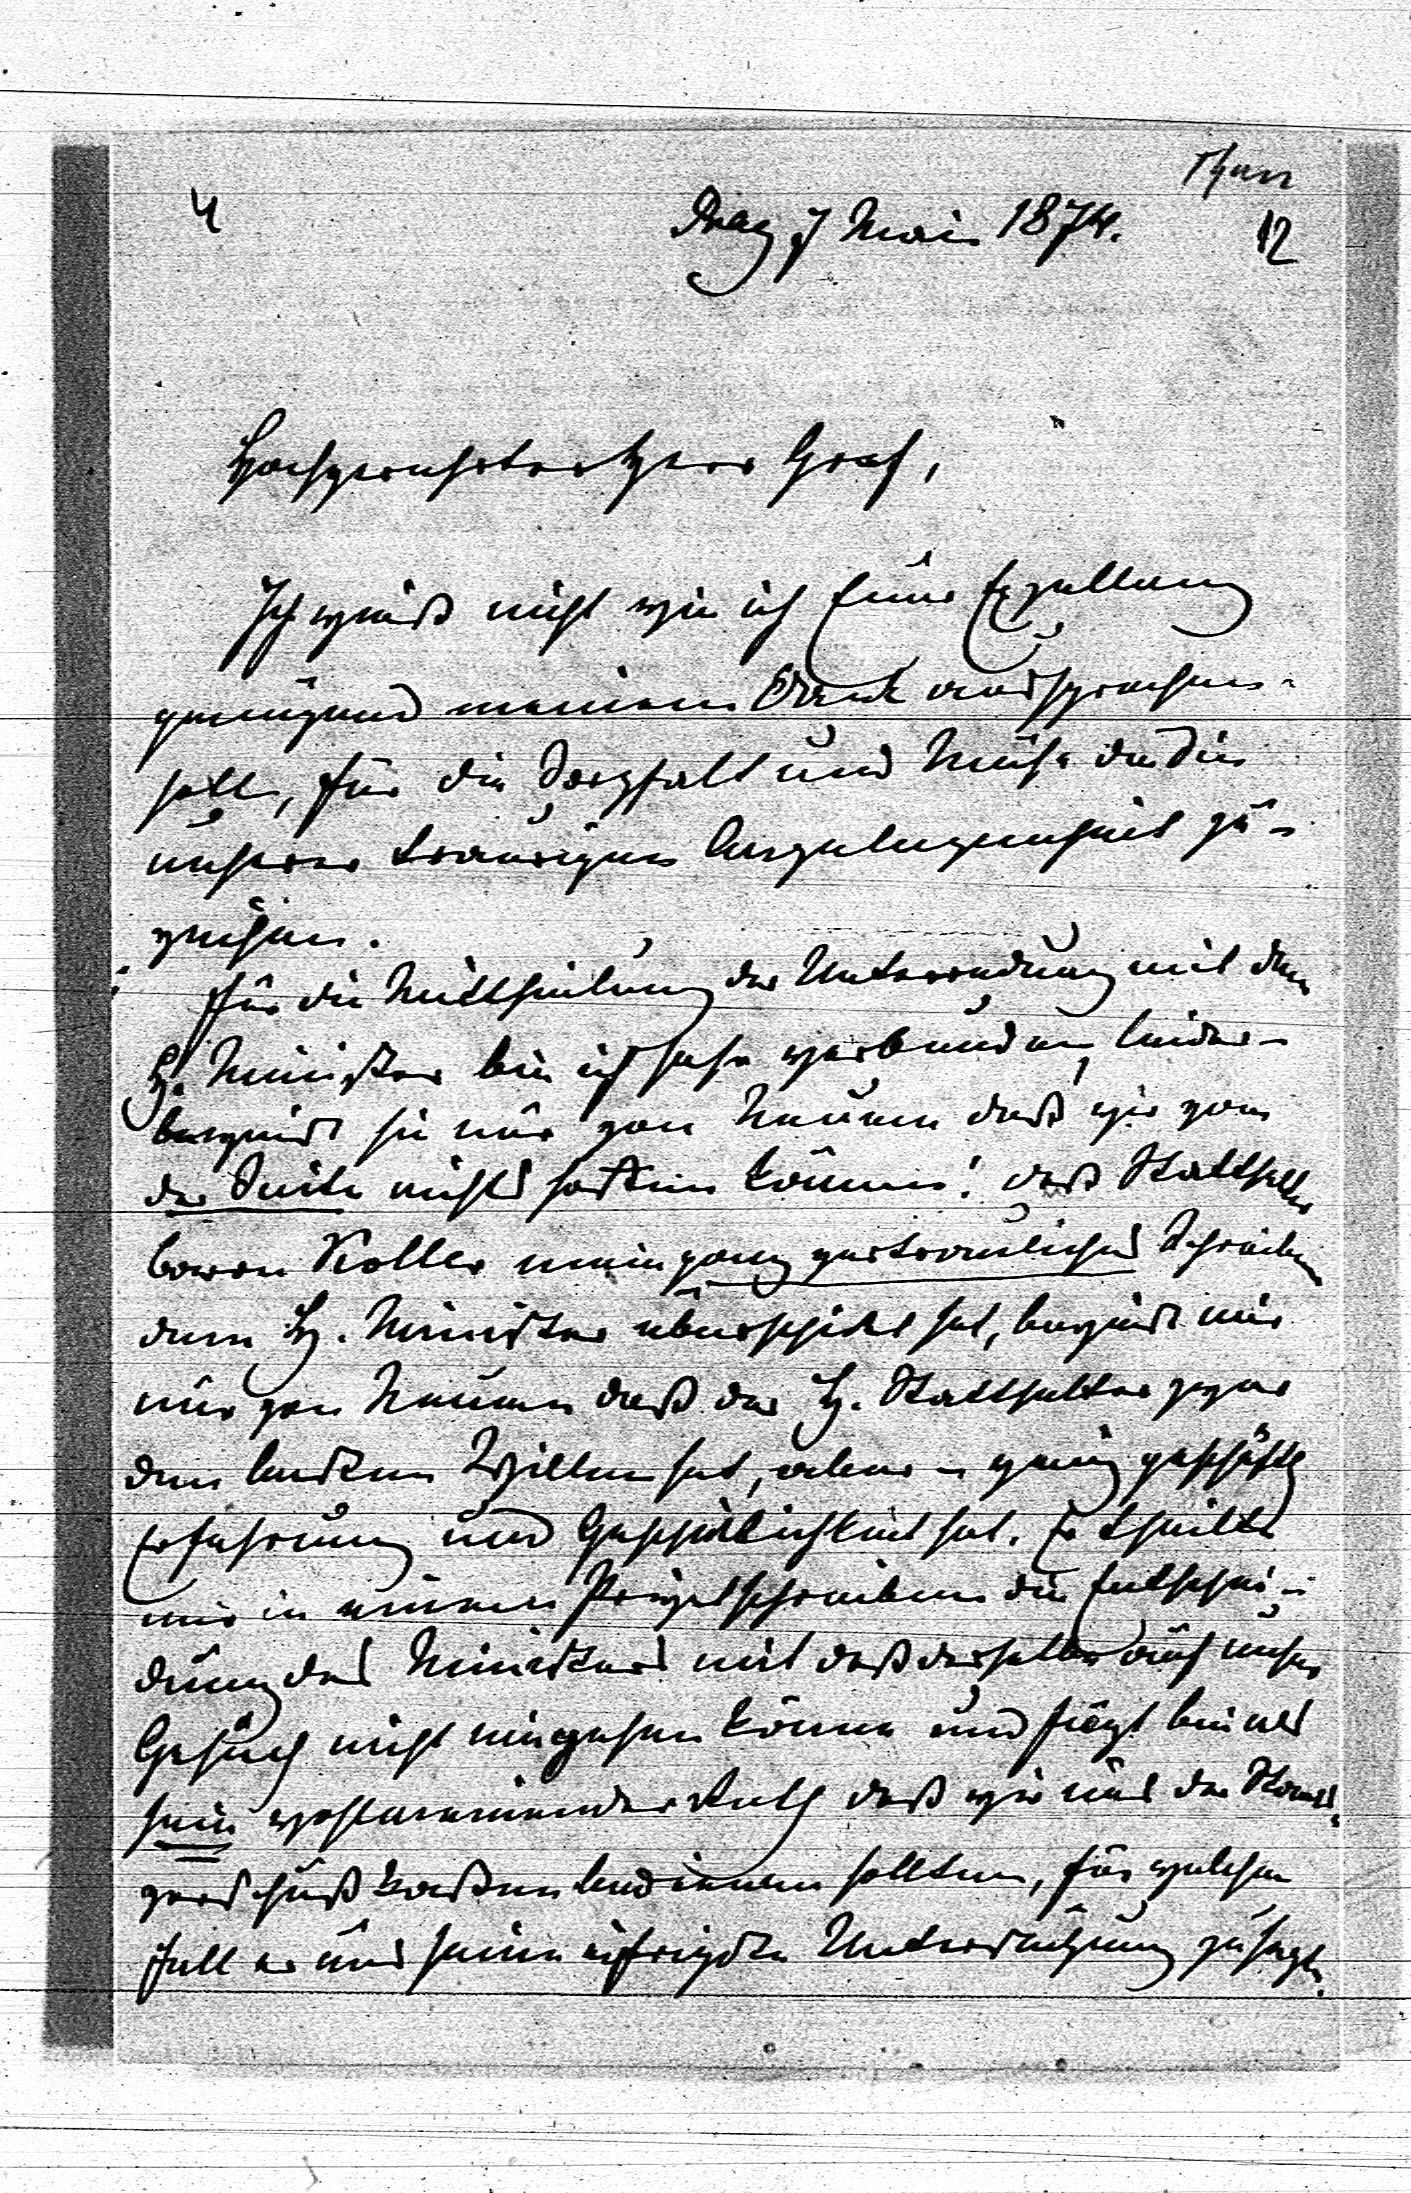 Thun
4 Prag 7 Mai 1874. 12
Hochgeehrter Herr Graf,
Ich weiß nicht wie ich Eure Exzellenz
genügend meinen Dank aussprechen
soll, für die Sorgfalt und Mühe die Sie
unserer traurigen Angelegenheit zu-
weihen.
Für die Mittheilung der Unterredung mit dem
H. Minister bin ich sehr verbunden, leider
beweist sie nur von Neuem daß wir von
der Seite nichts hoffen können! daß Statthalter
baron Koller mein ganz vertrauliches Schreiben
dem H. Minister überschickt hat, beweist mir
nur von Neuem daß der H. Statthalter zwar
den besten Willen hat, aber wenig geschäfts
Erfahrung und Geschicklichkeit hat. Er theilte
mir in einem Privatschreiben die Entschei-
dung des Ministers mit daß derselbe auf unser
Gesuch nicht eingehen könne und fügt bei als
sein wohlmeinender Rath daß wir uns der Staats-
vorschuß kassen bedienen sollten, für welchen
Fall er uns seine eifrigste Unterstützung zusagte.